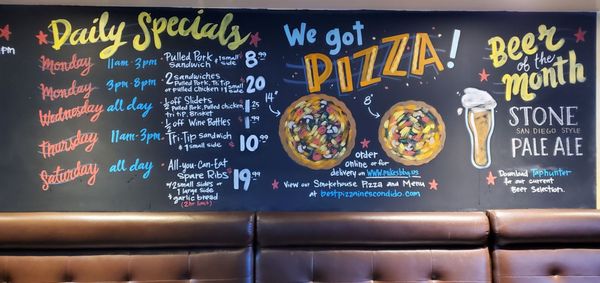 Daily Specials
Monday 11am-3pm Pulled Pork + 1 small Sandwich side $8.99
Monday 3pm-8pm 2 Sandwiches Pulled Pork, Tri Tip or Pulled Chicken + 1 Side $20
Wednesday all day 1/2 off Sliders Pulled Pork, Pulled Chicken Tri Tip, Brisket $1.25
1/2 off Wine Bottles
Thursday 11am-3pm Tri-Tip Sandwich + 1 small side $10.99
Saturday all day All-You-Can-Eat Spare Ribs $19.99
w/2 small sides or
1 large side
+ garlic bread
(2hr limit)
pm
We got
PIZZA!
14"
8"
order
online or for
delivery on
View our Smokehouse Pizza and Menu
at bestpizzainescondido.com
Beer
of the
Month
STONE
SAN DIEGO STYLE
PALE ALE
Download Taphunter
for our current
Beer Selection.